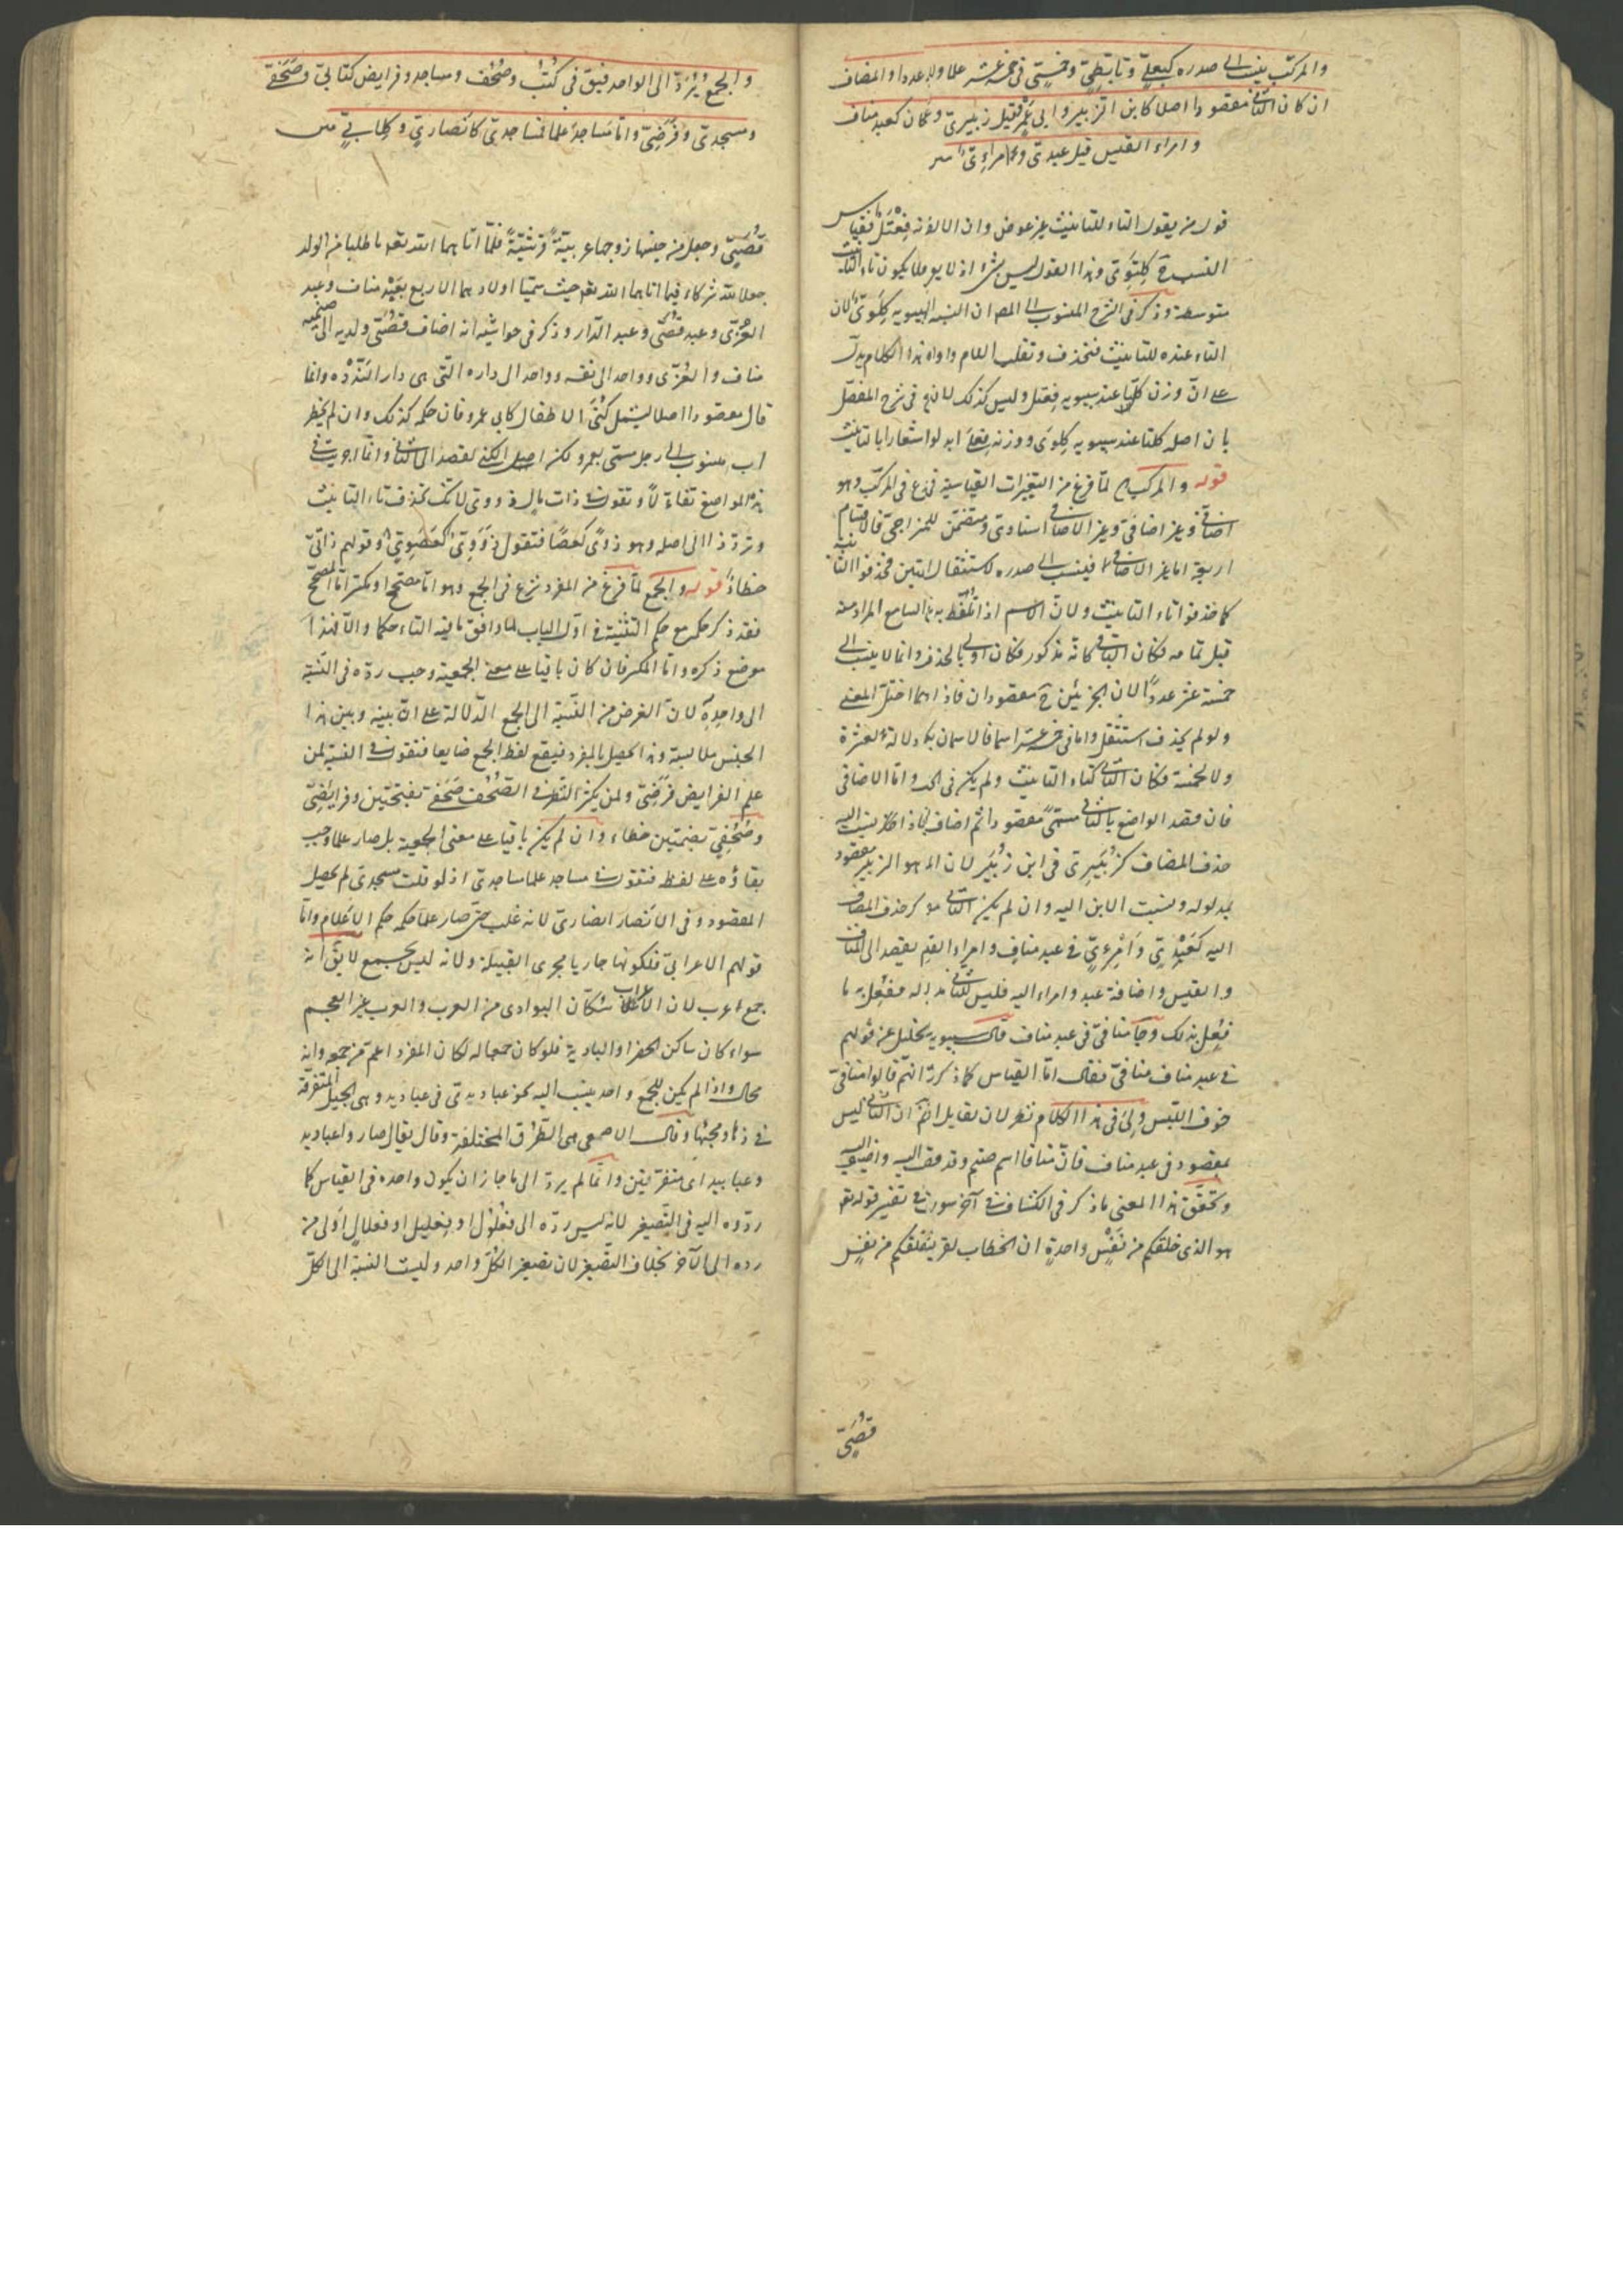 والمركب ينسب الى صدره كبعلي وتأبطي وخمسي في خمسة عشر علما ولا عددا والمضاف
ان كان الثاني مقصودا اصلا كابن الزبير وابي عمرو قيل زبيري وعمري وان كان كعبد مناف
وامراء القيس قيل عبدي وامراءي
قول من يقول التاء للتانيث غير عوض وان الالف فعتل فقياس
النسبة كلتوي وهذا القول ليس بشيء اذ لا يوجد ما يكون تاء التانيث
متوسطة وذكر في الشرح المنسوب الى المص ان النسبة لسيبويه كلوي لان
التاء عنده للتانيث فتحذف وتقلب اللام واوا وهذا الكلام يدل
على ان وزن كلتا عند سيبويه فعتل وليس كذلك لما في شرح المفصل
بان اصله كلتا عند سيبويه كلوى ووزنه فعلى ابدلوا اشعارا بالتانيث
قوله والمركب لما فرغ من التغييرات القياسية شرع في المركب وهو
اضافي وغير اضافي وغير الاضافي اسنادي ومتضمن للمزاجي فالاقسام
اربعة اما غير الاضافي فينسب الى صدره لاستثقال اثنين فحذفوا الثانية
كما حذفوا تاء التانيث ولان الاسم اذا تلفظ به فهم السامع المراد منه
قبل تمامه فكان الباقي كانه مذكور فكان اولى بالحذف وانما لا ينسب الى
خمسة عشر عددا لان الجزئين ح مقصودان فاذا حذف احدهما اختل المعنى
ولو لم يحذف استثقل واما في خمسة عشر اسما فالاسمان بلا دلالة لعشرة
ولا لخمسة فكان الثاني كتاء التانيث ولم يكن في الحد واما الاضافي
فان قصد الواضع بالثاني مسمى مقصودا ثم اضاف فاذا ينسب اليه
حذف المضاف كزبيري في ابن زبير لان الزبير مقصود
بمدلوله ونسبت الابن اليه وان لم يكن الثاني حذف المضاف
اليه كعبدي وامرءي في عبد مناف وامراء القيس لم يقصد الى المناف
والقيس واضافة عبد وامراء اليه فليس للثاني مدلوله ففعل به ما
فعل بذلك وجاء منافي في عبد مناف قال سيبويه الخليل عن قولهم
في عبد مناف منافي فقال اما القياس كما ذكرت الا انهم قالوا منافي
خوف اللبس ولي في هذا الكلام نظر لان لقايل ان الثاني ليس
بمقصود في عبد مناف فان منافا اسم صنم وقد قصد اليه واضيف اليه
وتحقق هذا المعنى ما ذكر في الكشاف في آخر سورة في تفسير قوله تع
هو الذي خلقكم من نفس واحدة ان الخطاب لقريش خلقكم من نفس
قصي
والجمع يرد الى الواحد فيق في كتب وصحف ومساجد وفرايض كتابي وصحفي
ومسجدي وفرضي واما مساجد علما فمساجدي كانصاري وكلابي
قصي وجعل من جنسها زوجها عربية قرشية فلما اتاهما الله تع ما طلبا من الولد
جعلا لله شركاء فيما اتاهما الله تع حيث سميا اولادهما الاربع بعبد مناف وعبد
العزى وعبد قصي وعبد الدار وذكر في حواشيه انه اضاف قصي ولديه الى صنميه
مناف والعزى وواحد الى نفسه وواحد الى داره التي هي دار الندوه وانما
قال مقصودا اصلا ليشمل كنى الاطفال كابي عمرو فان حكمه كذلك وان لم يخطر
اب منسوب الى رجل مسمى بعمرو لكن اصل الكنى لقصد الثاني وانما اجريت في
هذه المواضع تفاءلا وتقول في ذات مال ذووي لانك تحذف تاء التانيث
وترد ذا الى اصله وهو ذوى كعصا فتقول ذووي كعصوي وقولهم ذاتي
خطاء قوله والجمع لما فرغ من المفرد شرع في الجمع وهو اما مصحح او مكسر اما المصحح
فقد ذكر حكمه مع حكم التثنية في اول الباب لما وافق ما فيه التاء حكما
موضع ذكره واما المكسر فان كان باقيا على معنى الجمعية وجب رده في النسبة
الى واحده لان الغرض من النسبة الى الجمع الدلالة على ان بينه وبين هذا
الجنس ملابسة وهذا يحصل بالمفرد فيقع لفظ الجمع ضايعا فتقول في النسبة لمن
علم الفرايض فرضي ولمن يكثر النظر في الصحف صحفي بفتحتين وفرايضي
وصحفي بضمتين خطاء وان لم يكن باقيا على معنى الجمعية بل صار علما وجب
بقاؤه على لفظه فتقول في مساجد علما مساجدي اذ لو قلت مسجدي لم يحصل
المقصود وفي الانصار انصاري لانه غلب حتى صار علما حكمه حكم الاعلام واما
قولهم الاعرابي فلكونها جاريا مجرى القبيلة ولانه ليس بجمع لا يق انه
جمع اعرب لان الاعراب سكان البوادي من العرب والعرب غير العجم
سواء كان ساكن الحضر او البادية فلو كان جمعا له لكان المفرد اعم من جمعه وانه
محال واذا لم يكن للجمع واحد ينسب اليه نحو عباديدي في عباديد وهي الخيل المتفرقة
في ذهابها ومجيئها وقال الاصمعي هي الطرق المختلفة وقال يقال صاروا عباديد
وعبابيد اي متفرقين وانما لم يرد الى ما جاز ان يكون واحده في القياس كما
ردوه اليه في التصغير لانه ليس رده الى فعلول او فعليل او فعلال اولى من
رده الى الآخر بخلاف التصغير لان تصغير الكل واحد وليست النسبة الى الكل